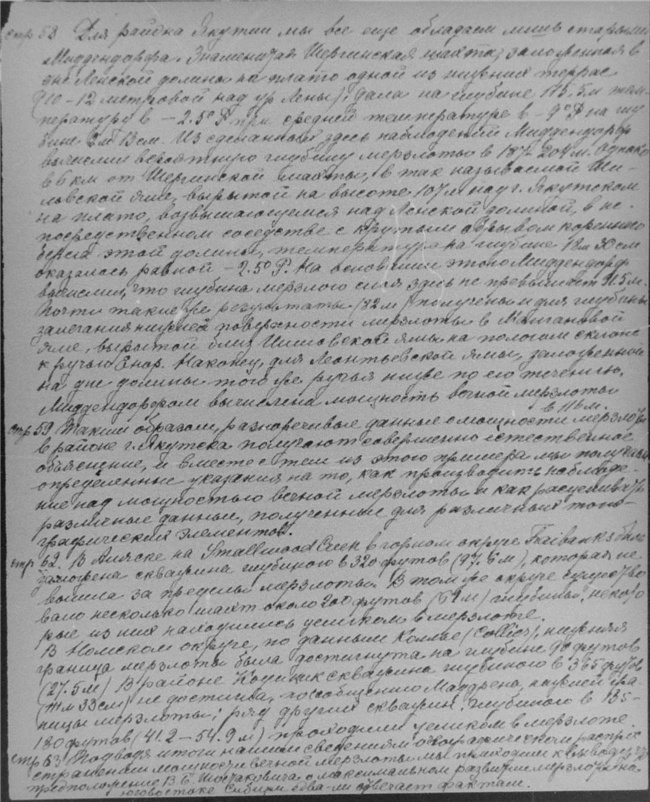 стр 58 Для района Якутии мы все еще обладаем лишь старыми
Миддендорфа. Знаменитая Шергинская шахта, заложенная в
дне Ленской долины на плато одной из нижних террас
(10-12 метровой над ур Лены), дала на глубине 115.5 м тем-
пературу в -2.5° при средней температуре в -9° на глу-
бине 2 м 13 см. Из сделанных здесь наблюдений Миддендорф
вычислил вероятную глубину мерзлоты в 187-204 м. Однако
в 6 км от Шергинской шахты, в так называемой Ши-
ловской яме, вырытой на высоте 107 м над г. Якутском
на плато, возвышающемся над Ленской долиной, в не-
посредственном соседстве с крутым обрывом коренного
берега этой долины, температура на глубине 12 м 80 см
оказалась равной -2.5° Р. На основании этого Миддендорф
вычислил, что глубина мерзлого слоя здесь не превышает 91.5 м.
Почти такие же результаты (92 м) получены и для глубины
залегания нижней поверхности мерзлоты в Мангановой
яме, вырытой близ Шиловской ямы на пологом склоне
к ручью Енор. Наконец, для Леонтьевской ямы, заложенной
на дне долины того же ручья ниже по его течению,
Миддендорфом вычислена мощность вечной мерзлоты
в 116 м.
стр 59 Таким образом, разноречивые данные о мощности мерзлоты
в районе г. Якутска получают совершенно естественное
объяснение, и вместе с тем из этого примера мы получаем
определенные указания на то, как производить наблюде-
ние над мощностью вечной мерзлоты и как расценивать
различные данные, полученные для различных топо-
графических элементов.
стр 62. В Аляске на Smallwood Creek в горном округе Fairbanks была
заложена скважина глубиного в 320 футов (97.5 м), которая не
вышла за пределы мерзлоты. В том же округе существо
вало несколько шахт около 200 футов (61 м) глубины, некото
рые из них находились целиком в мерзлоте.
В Номском округе, по данным Колье (Collier), нижняя
граница мерзлоты была достигнута на глубине 90 футов
(27.5 м) В районе скважина глубиного в 365 футов
(111 м 33 см) не достигла, по сообщению Маддрена, нижней гра
ницы мерзлоты; ряд других скважин глубиного в 135-
180 футов (41.2-54.9 м) проходили целиком в мерзлоте.
стр 63 Подводя итоги нашим сведениям о географическом распро
странении мощности вечной мерзлоты мы приходим к выводу, что
предположения В.Б. Шостаковича о максимальном развитии мерзлоты на
юговостоке Сибири едва-ли отвечает фактам.